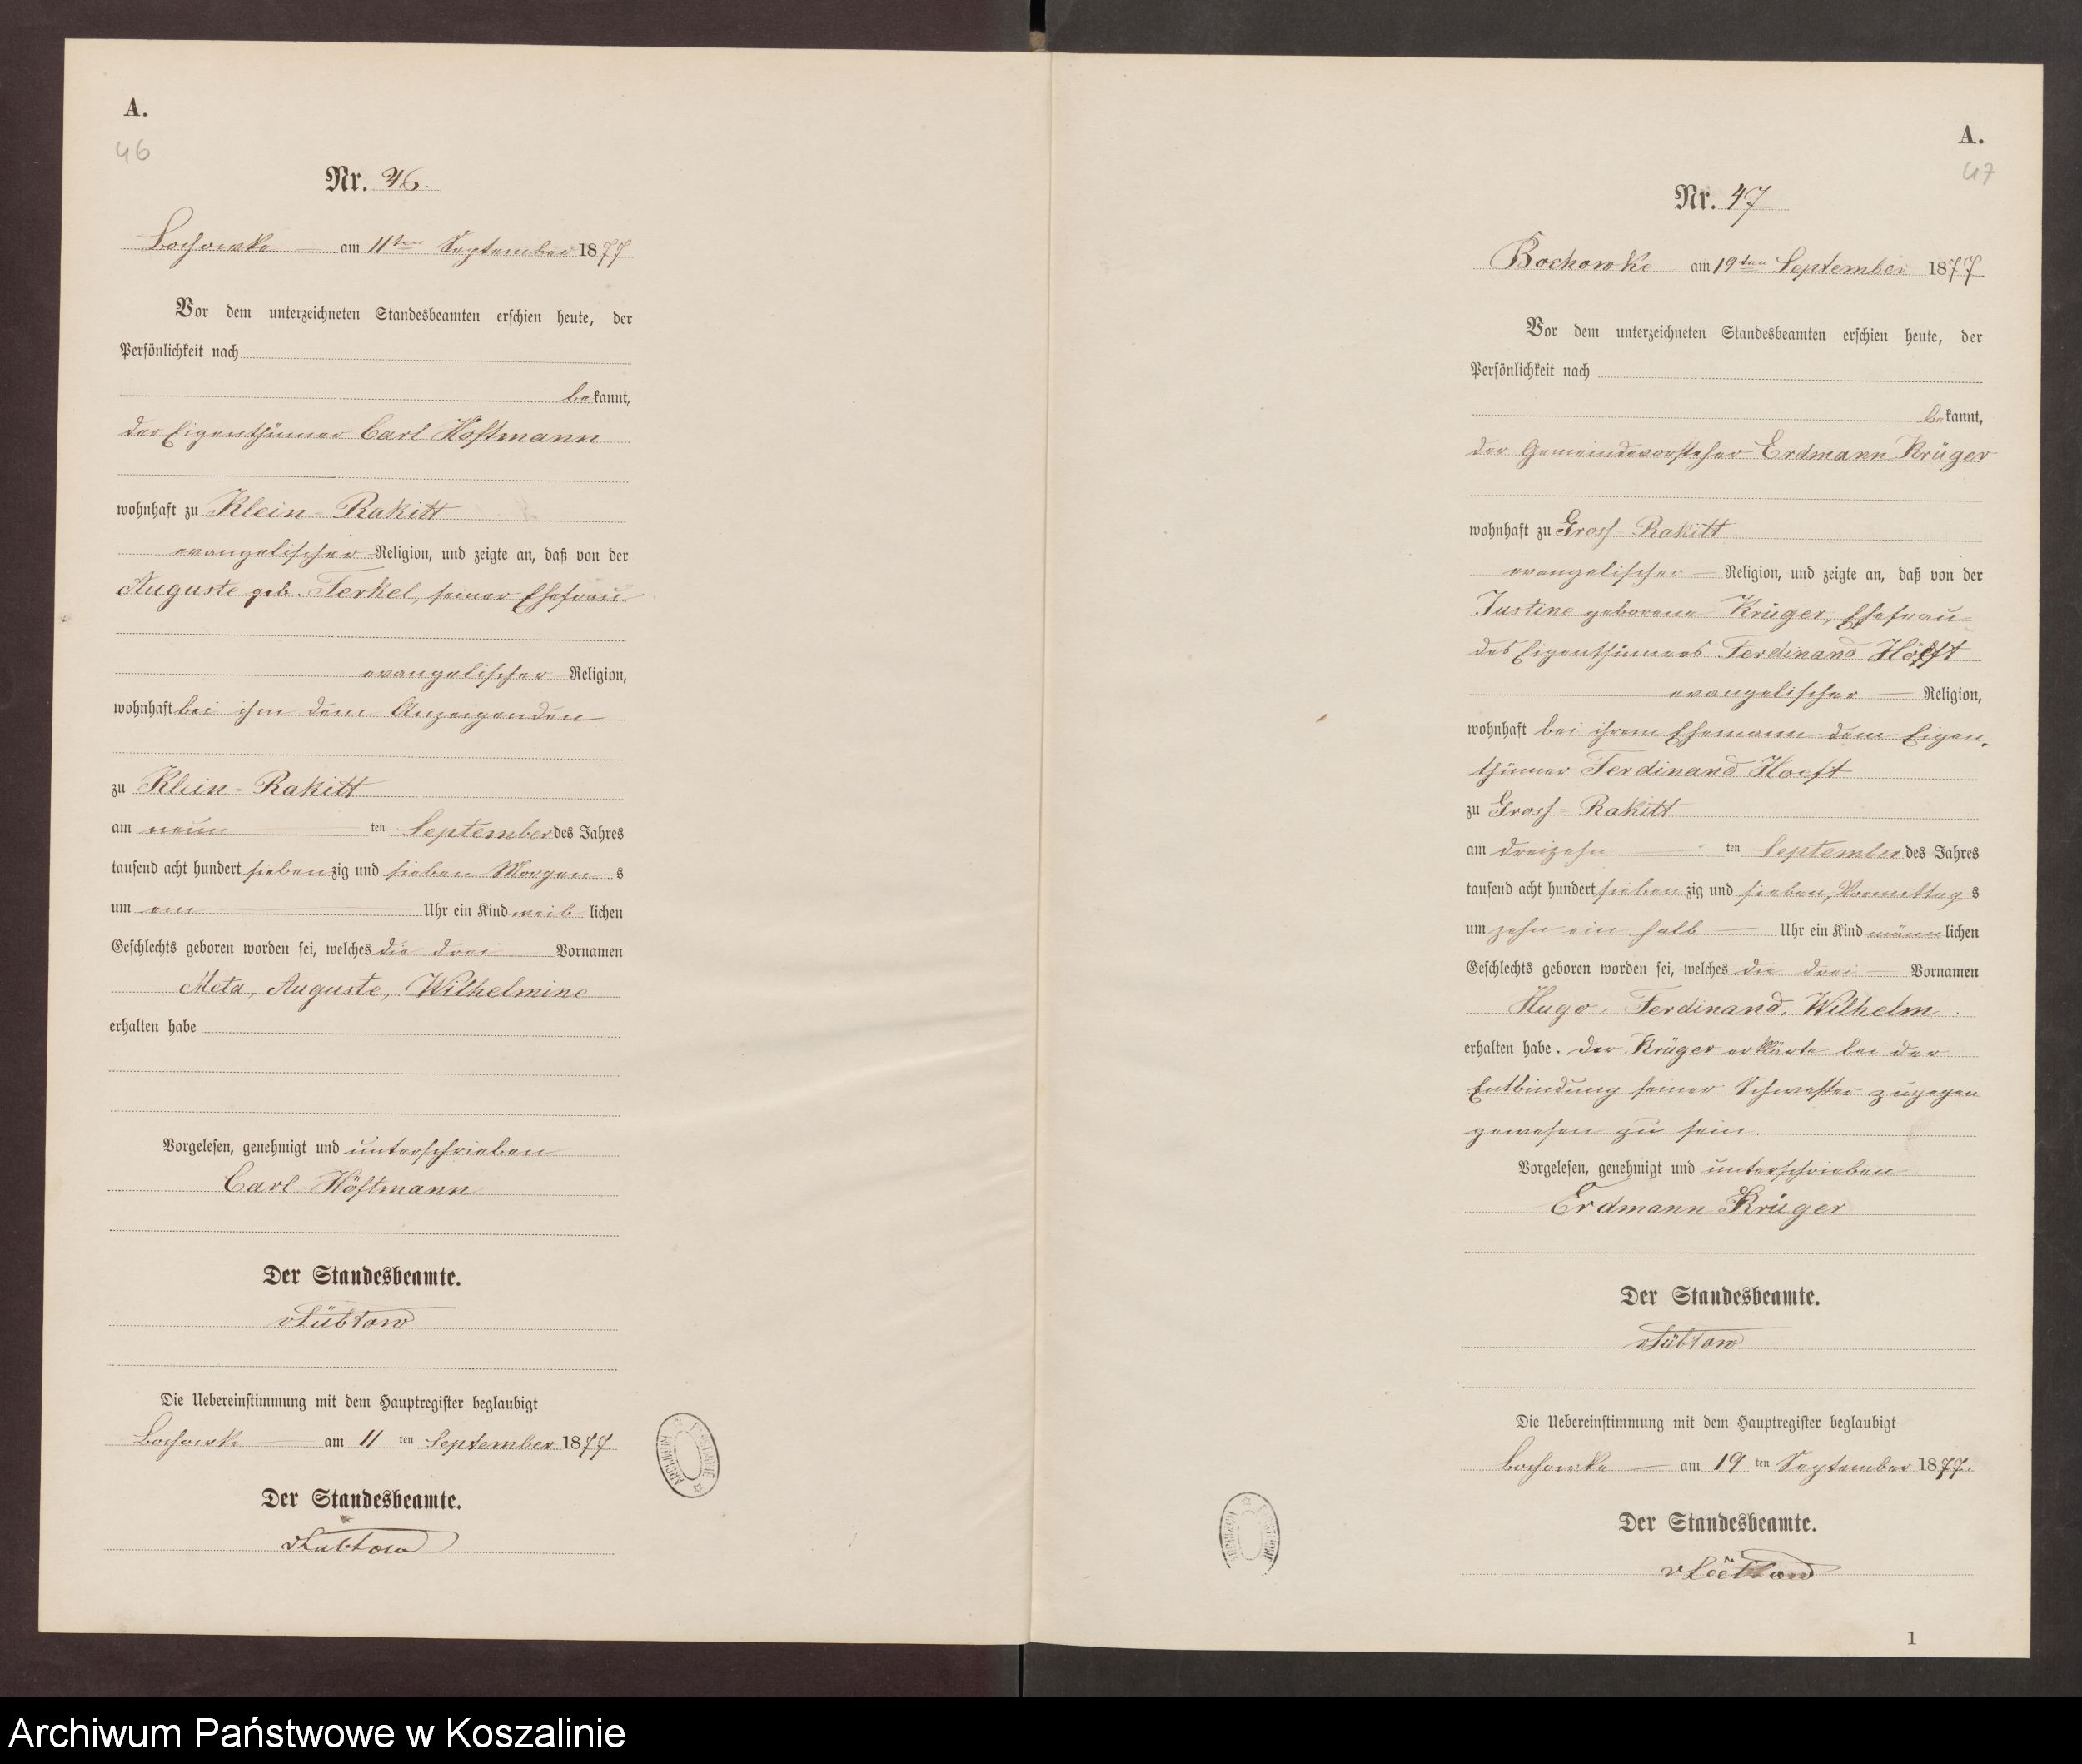 A.
46
Nr. 46.
Bochowke am 11ten September 1877
Vor dem unterzeichneten Standesbeamten erschien heute, der
Persönlichkeit nach
bekannt,
der Eigenthümer Carl Höftmann
wohnhaft zu Klein-Rakitt
evangelischer Religion, und zeigte an, daß von der
Auguste geb. Ferkel, seiner Ehefrau
evangelischer Religion,
wohnhaft bei ihm dem Anzeigenden
zu Klein-Rakitt
am neun ten September des Jahres
tausend acht hundert siebenzig und sieben Morgens
um ein Uhr ein Kind weiblichen
Geschlechts geboren worden sei, welches die drei Vornamen
Meta, Auguste, Wilhelmine
erhalten habe
Vorgelesen, genehmigt und unterschrieben
Carl Höftmann
Der Standesbeamte.
vSübtow
Die Uebereinstimmung mit dem Hauptregister beglaubigt
Bochowke am 11 ten September 1877
Der Standesbeamte.
A.
47
Nr. 47.
Bochowke am 19ten September 1877
Vor dem unterzeichneten Standesbeamten erschien heute, der
Persönlichkeit nach
bekannt,
der Gemeindevorsteher Erdmann Krüger
wohnhaft zu Gross Rakitt
evangelischer Religion, und zeigte an, daß von der
Justine geborene Krüger, Ehefrau
des Eigenthümers Ferdinand Höft
evangelischer Religion,
wohnhaft bei ihrem Ehemann dem Eigen-
thümer Ferdinand Hoeft
zu Gross-Rakitt
am dreizehn ten September des Jahres
tausend acht hundert siebenzig und sieben, Vormittags
um zehn ein halb Uhr ein Kind männlichen
Geschlechts geboren worden sei, welches die drei Vornamen
Hugo, Ferdinand, Wilhelm.
erhalten habe. Der Krüger erklärte bei der
Entbindung seiner Schwester zugegen
gewesen zu sein.
Vorgelesen, genehmigt und unterschrieben
Erdmann Krüger
Der Standesbeamte.
vSübtow
Die Uebereinstimmung mit dem Hauptregister beglaubigt
Bochowke am 19 ten September 1877.
Der Standesbeamte.
1
Archiwum Państwowe w Koszalinie